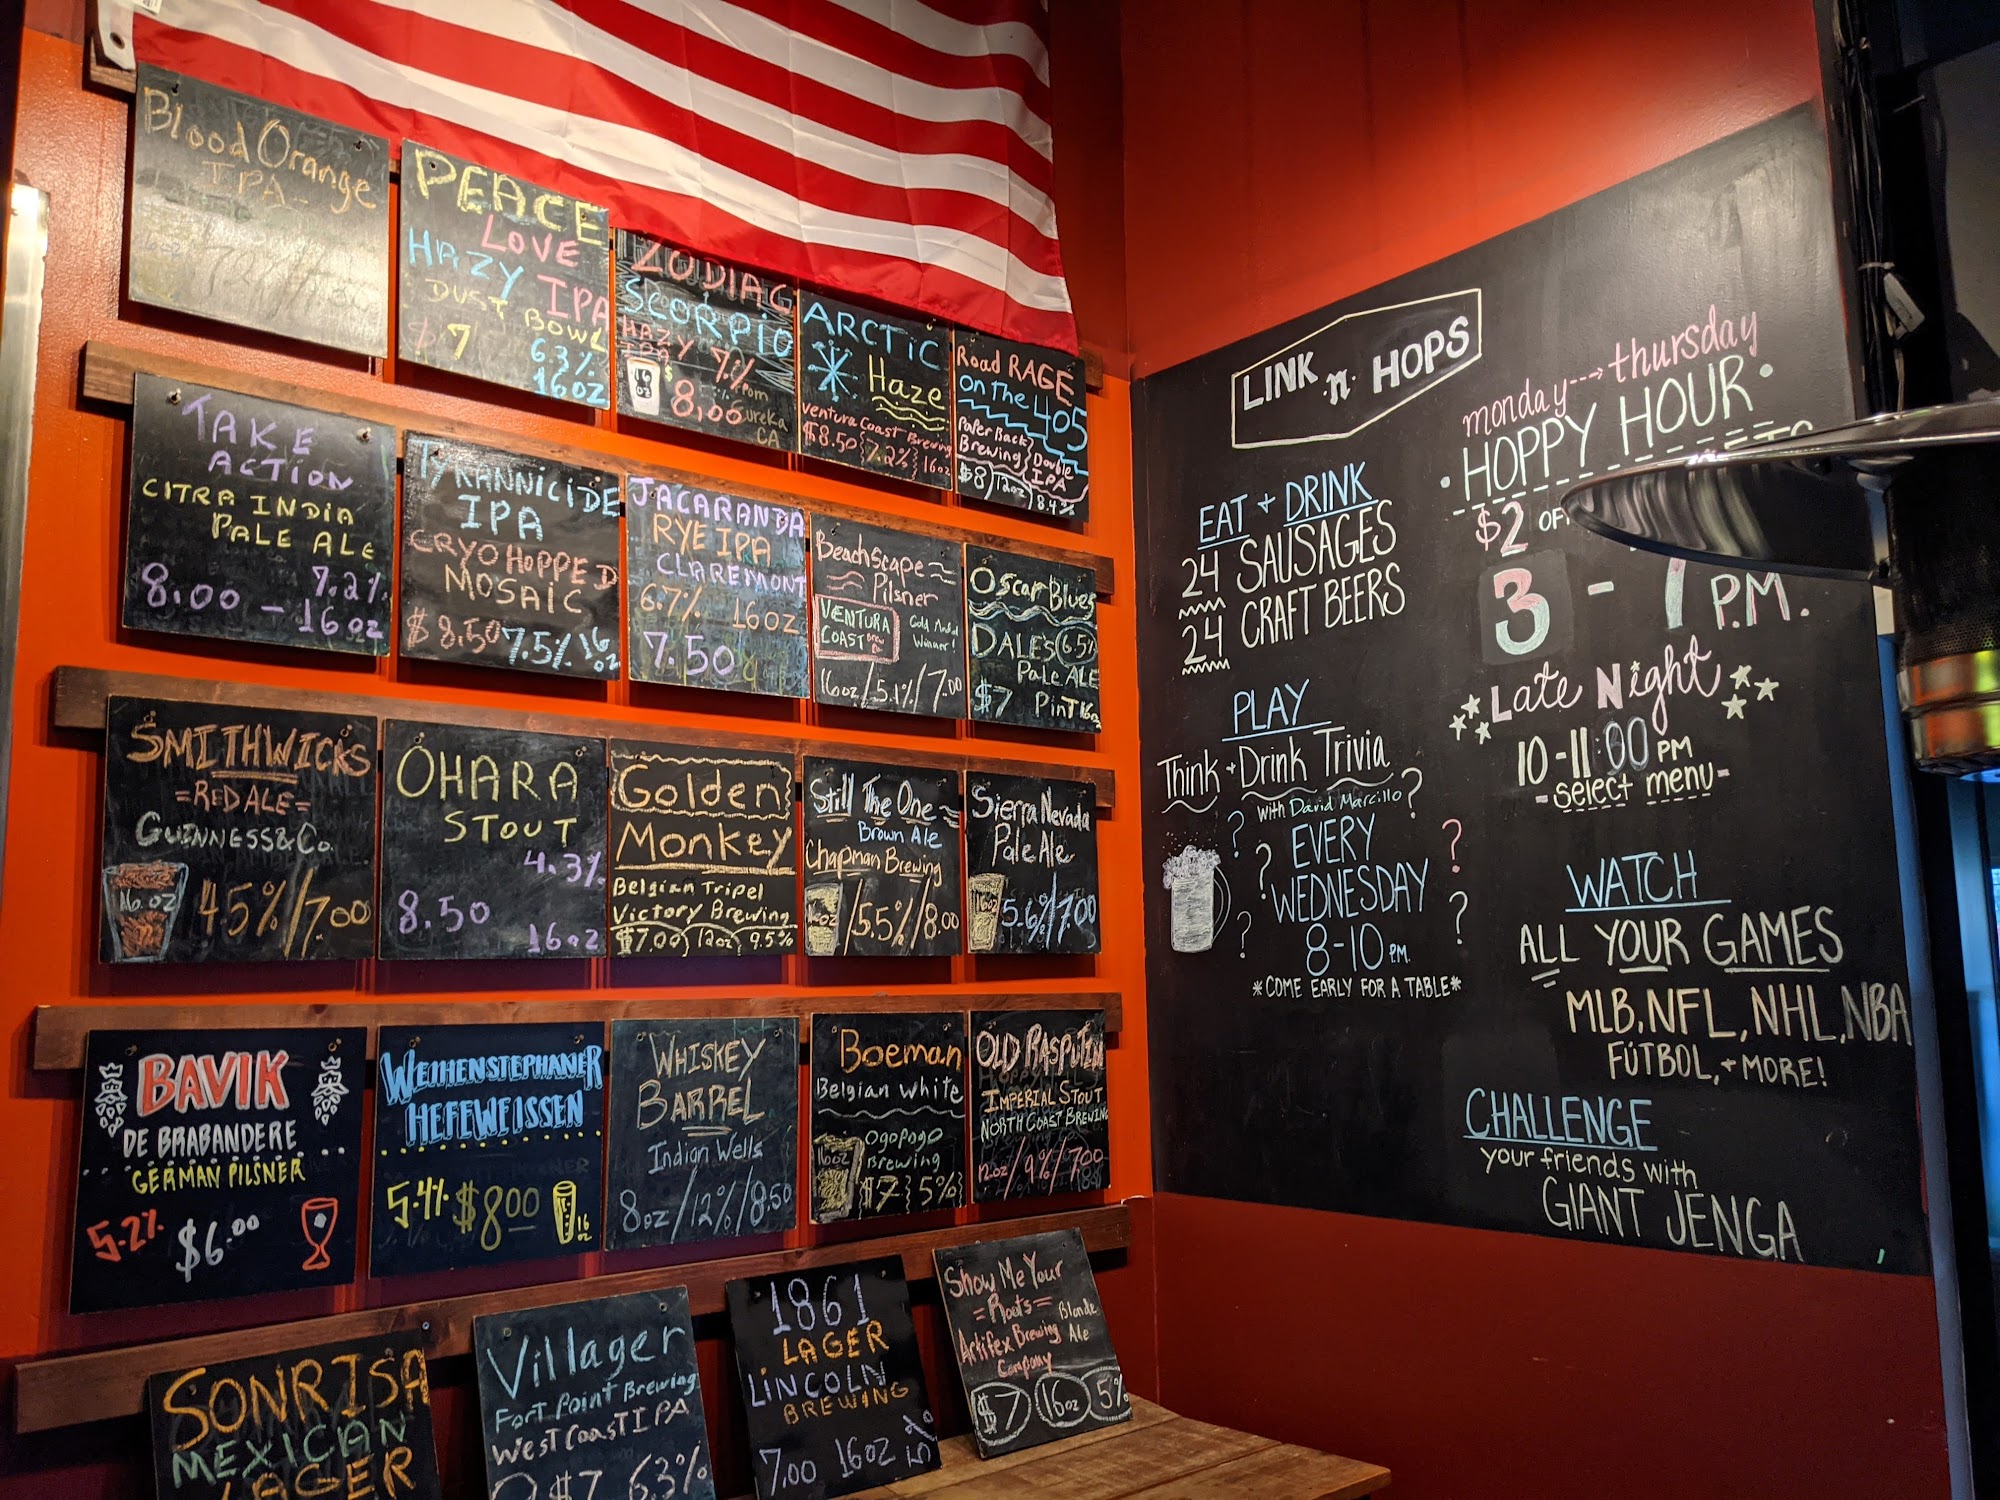 Blood Orange
IPA
PEACE
LOVE
HAZY IPA
DUST BOWL
$7 6.3%
16oz
ZODIAC
SCORPIO
HAZY 7%
IPA
8.00 From
Eureka
CA
ARCTIC
Haze
Ventura Coast Brewing
$8.50 7.2% 16oz
Road RAGE
on the 405
Paper Back
Brewing Double
IPA
$8 12oz 8.4%
TAKE
ACTION
CITRA INDIA
PALE ALE
7.2%
8.00 - 16oz
TYRANNICIDE
IPA
CRYO HOPPED
MOSAIC
$8.50 7.5% 16oz
JACARANDA
RYE IPA
CLAREMONT
6.7% 16oz
7.50
Beachscape
Pilsner
VENTURA
COAST
Gold Medal
Winner!
16oz/5.1%/7.00
Oscar Blues
DALES 6.5%
Pale ALE
$7 PinT 16oz
SMITHWICKS
=RED ALE=
GUINNESS & Co.
16oz 4.5%/7.00
OHARA
STOUT
4.3%
8.50
16oz
Golden
Monkey
Belgian Tripel
Victory Brewing
$7.00 12oz 9.5%
Still The One
Brown Ale
Chapman Brewing
16oz/5.5%/8.00
Sierra Nevada
Pale Ale
16oz 5.6%/7.00
BAVIK
DE BRABANDERE
GERMAN PILSNER
5.2% $6.00
WEIHENSTEPHANER
HEFEWEISSEN
5.4% $8.00
16oz
WHISKEY
BARREL
Indian Wells
8oz/12%/8.50
Boeman
Belgian White
Ogopogo
Brewing
16oz $7 5%
OLD RASPUTIN
IMPERIAL STOUT
NORTH COAST BREWING
12oz/9%/7.00
SONRISA
MEXICAN
LAGER
Villager
Fort Point Brewing
West Coast IPA
$7 6.3%
1861
LAGER
LINCOLN
BREWING
7.00 16oz 5%
Show Me Your
=Roots= Blonde
Artifex Brewing Ale
Company
$7 16oz 5%
LINK n HOPS
EAT + DRINK
24 SAUSAGES
24 CRAFT BEERS
PLAY
Think + Drink Trivia
with David Marcillo
EVERY
WEDNESDAY
8-10 P.M.
*COME EARLY FOR A TABLE*
monday---> thursday
HOPPY HOUR
$2 OFF
3 - 7 P.M.
Late Night
10-11:00 PM
-select menu-
WATCH
ALL YOUR GAMES
MLB, NFL, NHL, NBA
FÚTBOL, + MORE!
CHALLENGE
your friends with
GIANT JENGA